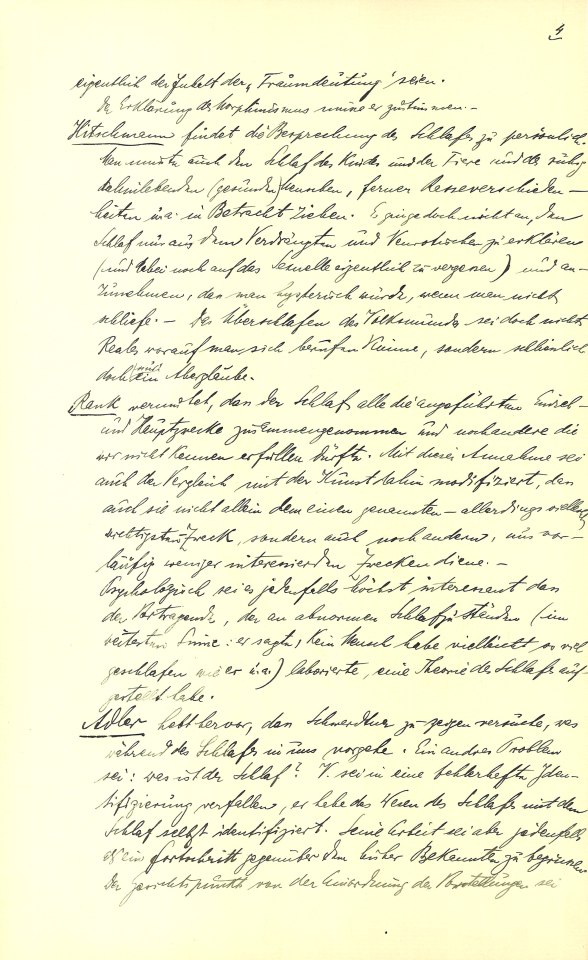 4
eigentlich der Inhalt der „Traumdeutung" seien.
Der Erklärung des Morphinismus müsse er zustimmen. –
Hitschmann findet die Besprechung des Schlafes zu persönlich.
Man müsste auch den Schlaf des Kindes und der Tiere und der ruhig
dahinlebenden (gesunden) Menschen, ferner Rasseverschieden-
heiten u.a. in Betracht ziehen. Es ginge doch nicht an, den
Schlaf nur aus dem Verdrängten und Neurotischen zu erklären
(und dabei noch auf das Sexuelle eigentlich zu vergessen) und an-
zunehmen, dass man hysterisch würde, wenn man nicht
schliefe. – Das Überschlafen des Volksmundes sei doch nichts
Reales worauf man sich berufen könne, sondern schliesslich
doch nur ein Aberglaube.
Rank vermutet, dass der Schlaf alle die angeführten Einzel-
und Hauptzwecke zusammengenommen und noch andere die
wir nicht kennen erfüllen dürfte. Mit dieser Annahme sei
auch der Vergleich mit der Kunst dahin modifiziert, dass
auch sie nicht allein dem einen genannten – allerdings
wichtigsten Zweck, sondern auch noch andern, uns vor-
läufig weniger interessierenden Zwecken diene. –
Psychologisch sei es jedenfalls höchst interessant dass
der Vortragende, der an abnormen Schlafzuständen (im
weitesten Sinne: er sagte, kein Mensch habe vielleicht so viel
geschlafen wie er u.a.) laborierte, eine Theorie des Schlafes auf-
gestellt habe.
Adler hebt hervor, dass Schwerdtner zu zeigen versuche, was
während des Schlafes in uns vorgehe. Ein andres Problem
sei: was ist der Schlaf? V. sei in eine fehlerhafte Iden-
tifizierung verfallen, er habe das Wesen des Schlafes mit dem
Schlaf selbst identifiziert. Seine Arbeit sei aber jedenfalls
als ein Fortschritt gegenüber dem bisher Bekannten zu begrüssen
Der Gesichtspunkt von der Anordnung der Vorstellungen sei